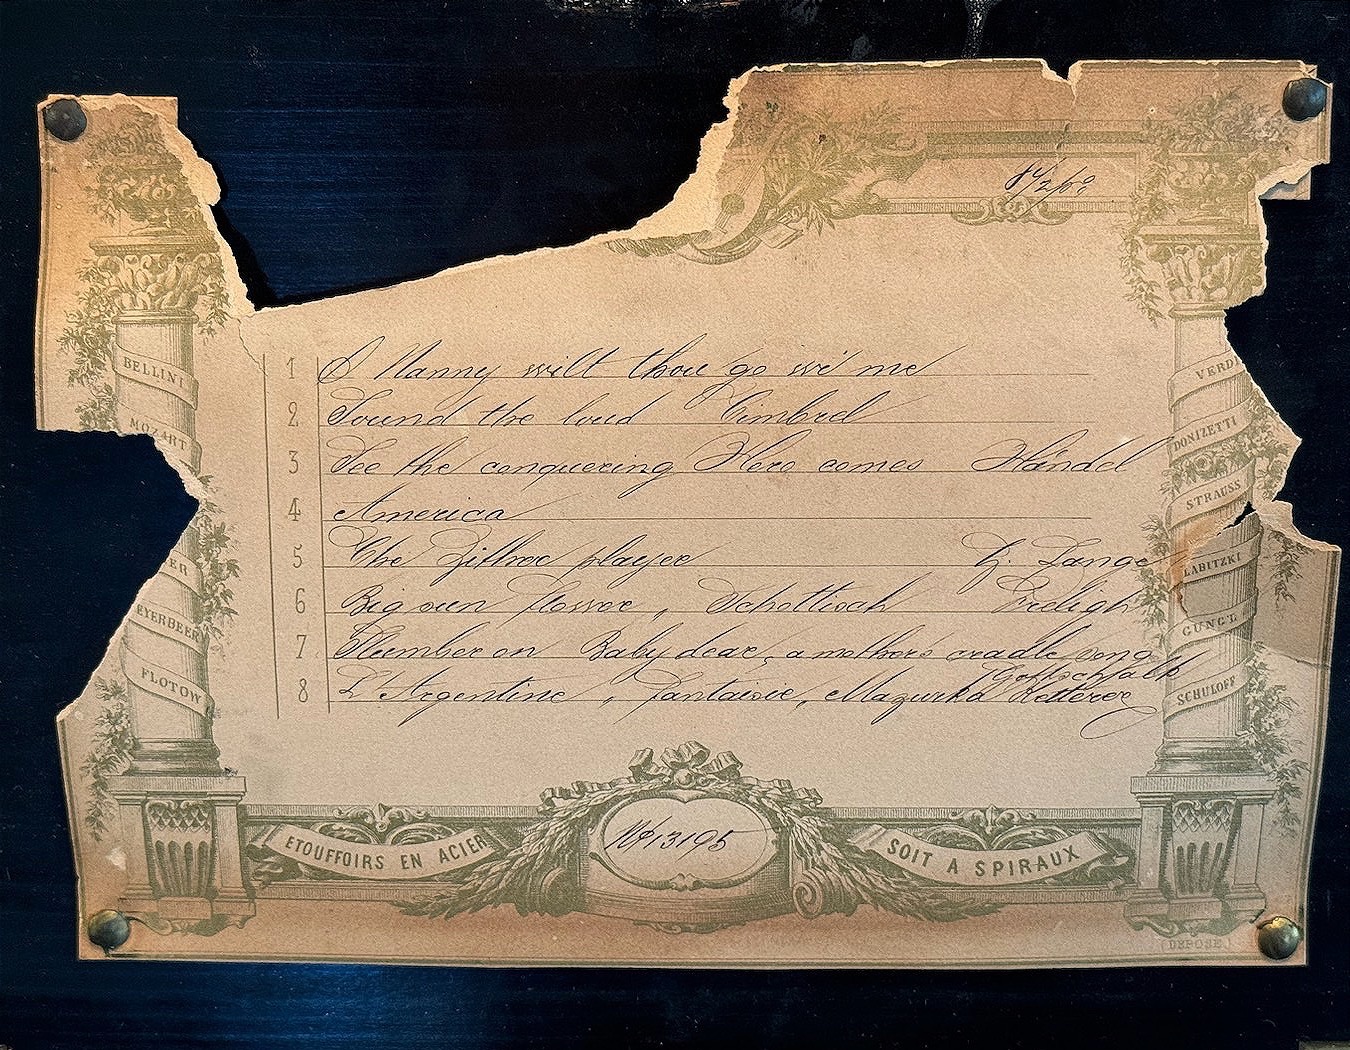 BELLINI
MOZART
ER
EYERBEER
FLOTOW
1 O Nanny wilt thou go wi' me
2 Sound the loud Timbrel
3 See the conquering Hero comes Händel
4 America
5 The Zither player G. Lange
6 Schottisch
7 Slumber on Baby dear, a mothers cradle song
Gottschalk
8 L'Argentine, Fantaisie, Mazurka Ketterer
VERDI
DONIZETTI
STRAUSS
LABITZKI
GUNG'L
SCHULOFF
ETOUFFOIRS EN ACIER
No 13195
SOIT A SPIRAUX
(DEPOSE)